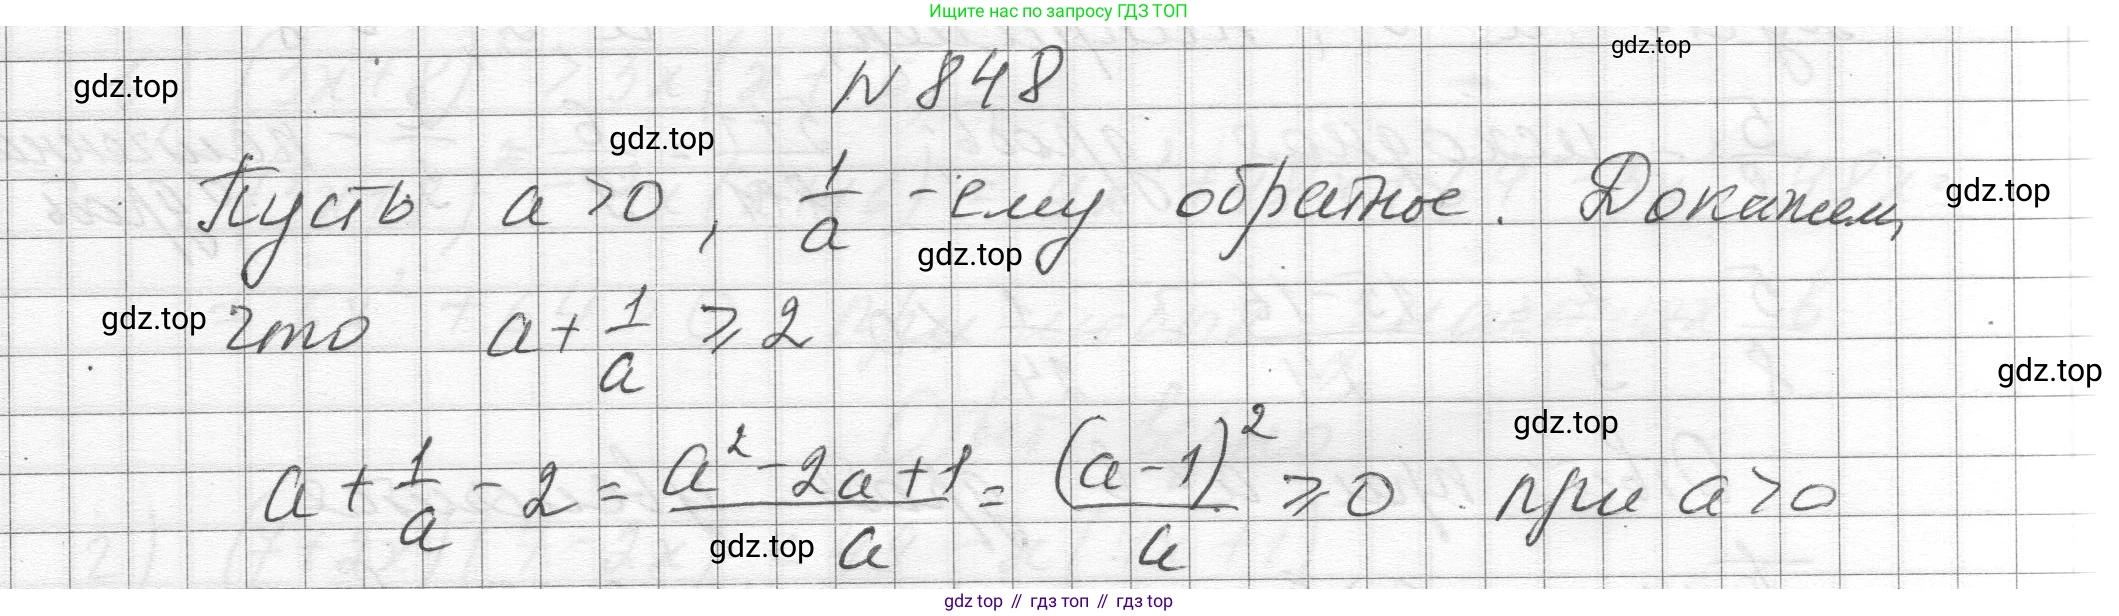 Ищите нас по запросу ГДЗ ТОП
gdz.top
N 848
gdz.top
gdz.top
Пусть a > 0, 1/a - ему обратное. Докажем,
gdz.top
gdz.top
что a + 1/a ⩾ 2
gdz.top
gdz.top
gdz.top
a + 1/a - 2 = (a² - 2a + 1)/a = (a - 1)²/a ⩾ 0 при a > 0
gdz.top
gdz top // гдз топ // гдз top